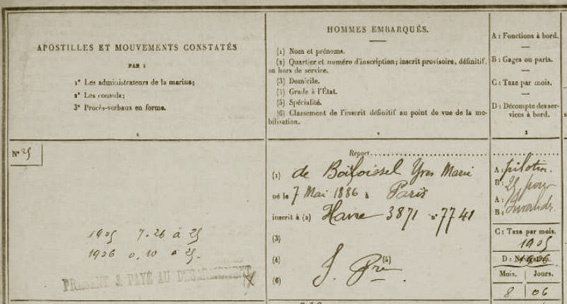 APOSTILLES ET MOUVEMENTS CONSTATÉS
PAR :
1° Les administrateurs de la marine;
2° Les consuls;
3° Procès-verbaux en forme.
1
HOMMES EMBARQUÉS.
(1) Nom et prénoms.
(2) Quartier et numéro d'inscription; inscrit provisoire, définitif,
ou hors de service.
(3) Domicile.
(4) Grade à l'État.
(5) Spécialité.
(6) Classement de l'inscrit définitif au point de vue de la mo-
bilisation.
2
A : Fonctions à bord.
B : Gages ou parts.
C : Taxe par mois.
D : Décompte des ser-
vices à bord.
3
N° 25
Report
(1) de Boisboissel Yves Marie
né le 7 Mai 1886 à Paris
inscrit à (2) Havre 3871 n° 7741
(3)
(4) (5)
(6)
1905 7.26 à 25
1906 0.10 à 25
PRESENT & PAYÉ AU DESARMEMENT
A : pilotin
B :
A :
B :
C : Taxe par mois.
1905
D :
Mois. Jours.
8 06